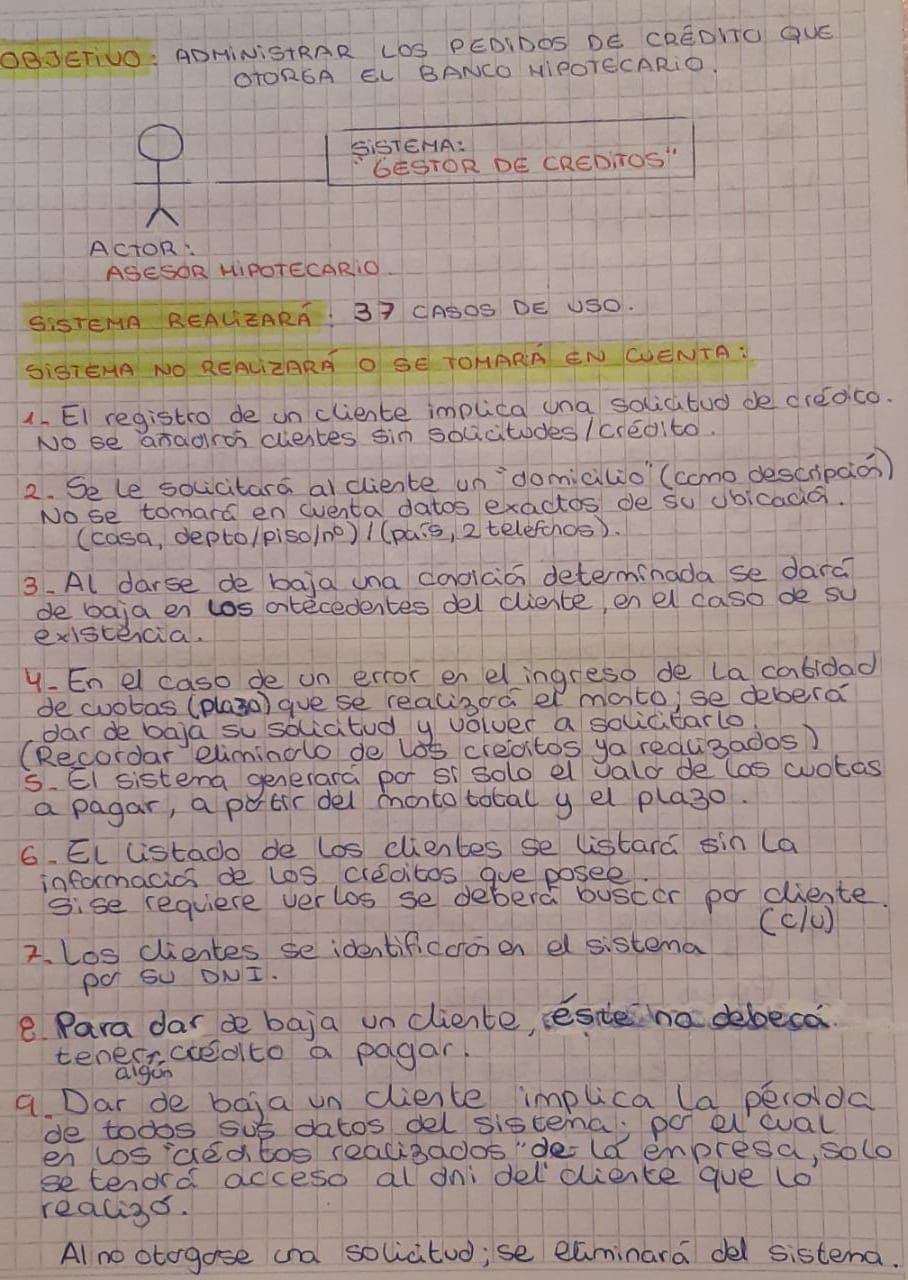 OBJETIVO: ADMINISTRAR LOS PEDIDOS DE CRÉDITO QUE
OTORGA EL BANCO HIPOTECARIO.
SISTEMA:
"GESTOR DE CREDITOS"
ACTOR:
ASESOR HIPOTECARIO.
SISTEMA REALIZARÁ: 37 CASOS DE USO.
SISTEMA NO REALIZARÁ O SE TOMARÁ EN CUENTA:
1.- El registro de un cliente implica una solicitud de crédito.
No se añadirán clientes sin solicitudes/crédito.
2. Se le solicitará al cliente un "domicilio" (como descripción)
No se tomará en cuenta datos exactos de su ubicación.
(casa, depto/piso/nº)/(país, 2 telefonos).
3.- Al darse de baja una condición determinada se dará
de baja en los antecedentes del cliente, en el caso de su
existencia.
4.- En el caso de un error en el ingreso de la cantidad
de cuotas (plazo) que se realizará el monto; se deberá
dar de baja su solicitud y volver a solicitarlo.
(Recordar eliminarlo de los creditos ya realizados)
5. El sistema generará por sí solo el valor de las cuotas
a pagar, a partir del monto total y el plazo.
6.- El listado de los clientes se listará sin la
información de los créditos que posee.
Si se requiere verlos se deberá buscar por cliente.
(c/u)
7. Los clientes se identificarán en el sistema
por su DNI.
8. Para dar de baja un cliente, éste no deberá
tener crédito a pagar.
algún
9. Dar de baja un cliente implica la pérdida
de todos sus datos del sistema; por el cual
en los "créditos realizados" de la empresa, solo
se tendrá acceso al dni del cliente que lo
realizó.
Al no otorgarse una solicitud; se eliminará del sistema.